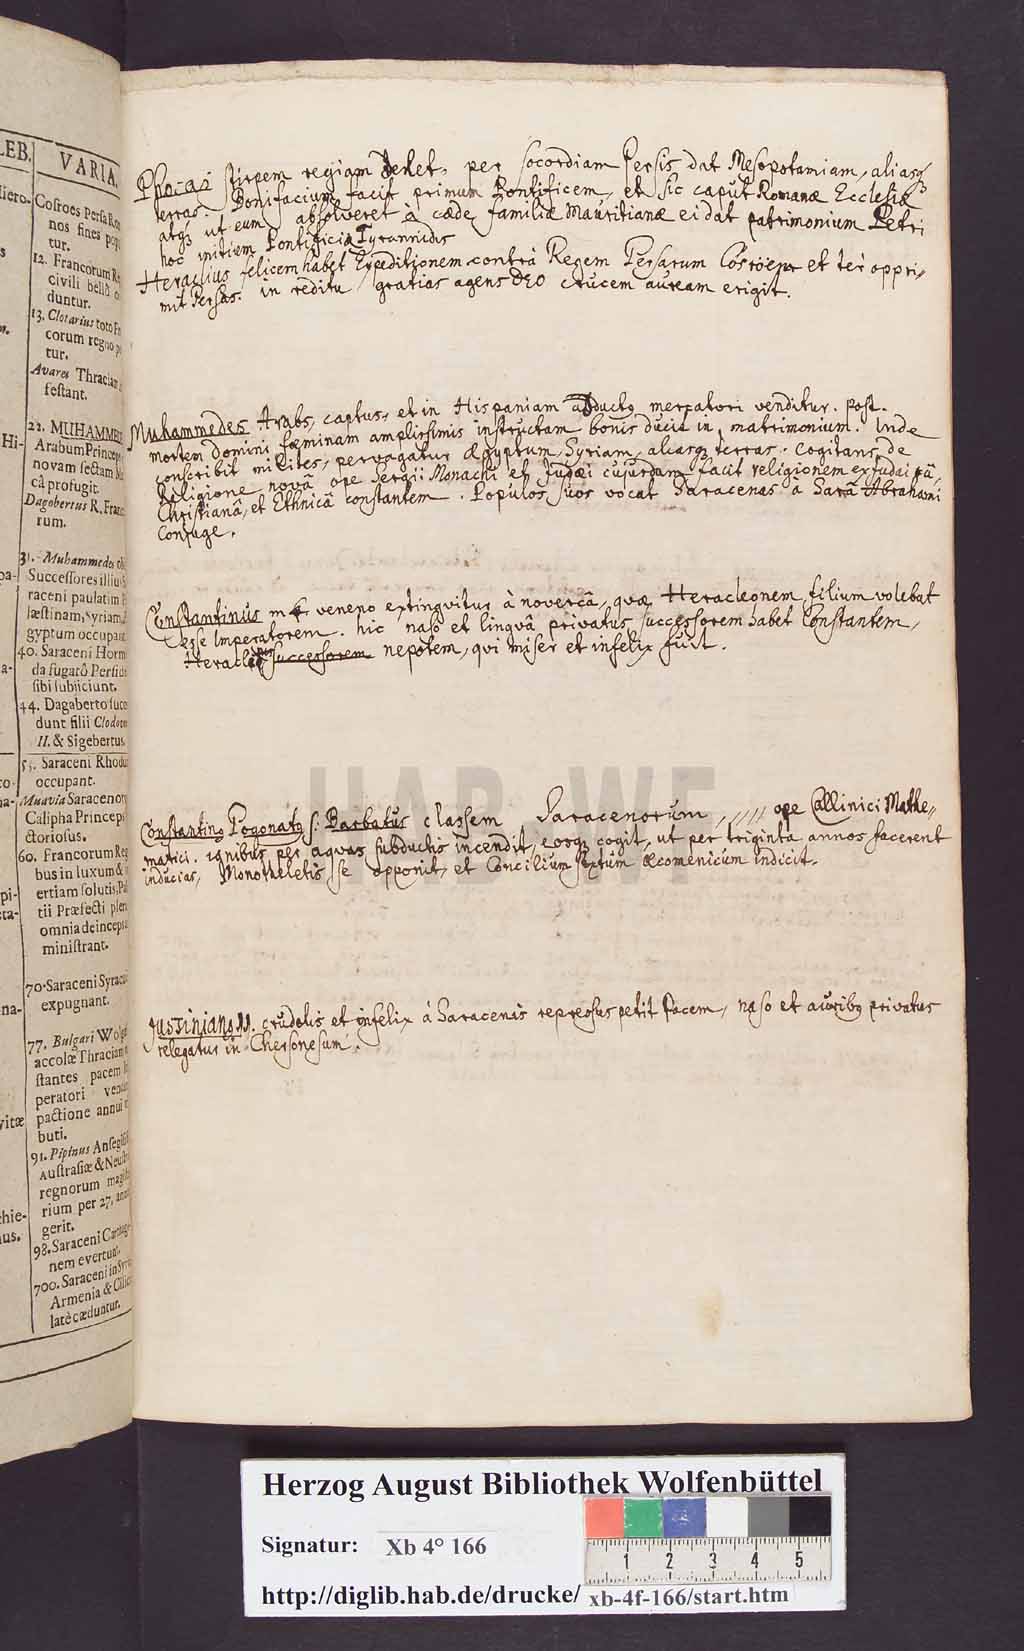 LEB.
VARIA.
Hiero-
Cosroes Persa Rom
nos fines popu
tur.
12. Francorum Re
civili bellô
duntur.
13. Clotarius toto Fr
corum regno po
tur.
Avares Thraciam
festant.
Hi-
22. MUHAMMEDE
Arabum Princeps
novam sectam
câ profugit.
Dagobertus R. Franc
rum.
31. Muhammedes obi
pa-
Successores illius S
raceni paulatim P
læstinam, Syriam, Æ
gyptum occupant.
40. Saraceni Horm
da fugatô Persid
sibi subjiciunt.
44. Dagaberto succe
dunt filii Clodove
II. & Sigebertus.
55. Saraceni Rhodum
occupant.
Muavia Saracenorum
Calipha Princeps
ctoriosus.
60. Francorum Reg
bus in luxum &
ertiam solutis, Pala
tii Præfecti plen
omnia deinceps a
ministrant.
70. Saraceni Syracus
expugnant.
77. Bulgari Wolgæ
accolæ Thraciam
stantes pacem
peratori vendunt
pactione annui tri
buti.
91. Pipinus Ansegisi
Austrasiæ & Neustri
regnorum magiste
rium per 27. annos
gerit.
98. Saraceni Carthagi
nem evertunt.
700. Saraceni in Syria
Armenia & Cilicia
latè cæduntur.
Phocas stirpem regiam delet, per socordiam Persis dat Mesopotamiam, aliasq3
terras. Bonifacium facit primum Pontificem, et sic caput Romanæ Ecclesiæ
atq3 ut eum absolveret à cæde familiæ Mauritianæ ei dat patrimonium Petri
hoc initium Pontificiæ Tyrannidis
Heraclius felicem habet Expeditionem contrà Regem Persarum Cosroem et ter oppri-
mit Persas. in reditu gratias agens DEO crucem auream erigit.
Muhammedes Arabs, captus, et in Hispaniam abductq mercatori venditur. post.
mortem domini fœminam amplissimis instructam bonis ducit in matrimonium. Inde
conscribit milites, pervagatur Ægyptum, Syriam, aliasq3 terras. Cogitans de
Religione novâ ope Sergii Monachi et Judæi cujusdam facit religionem ex Judaicâ,
Christianâ, et Ethnicâ constantem. Populos suos vocat Saracenas à Sarâ Abrahami
Conjuge.
Constantinus m veneno extinguitur à novercâ, quæ Heracleonem filium volebat
esse Imperatorem. hic naso et linguâ privatus successorem habet Constantem,
Heraclii successorem nepotem, qui miser et infelix fuit.
HAB WF
Constantinq Pogonatq s. Barbatus classem Saracenorum, ope Callinici Mathe-
matici. ignibus per aquas subductis incendit, eosq3 cogit, ut per triginta annos facerent
inducias, Monotheletis se opponit, et Concilium sextum œcomenicum indicit.
Justinianq II. crudelis et infelix à Saracenis repressus petit pacem, naso et auribq privatus
relegatur in Chersonesum.
Herzog August Bibliothek Wolfenbüttel
Signatur: Xb 4° 166
1 2 3 4 5
http://diglib.hab.de/drucke/ xb-4f-166/start.htm